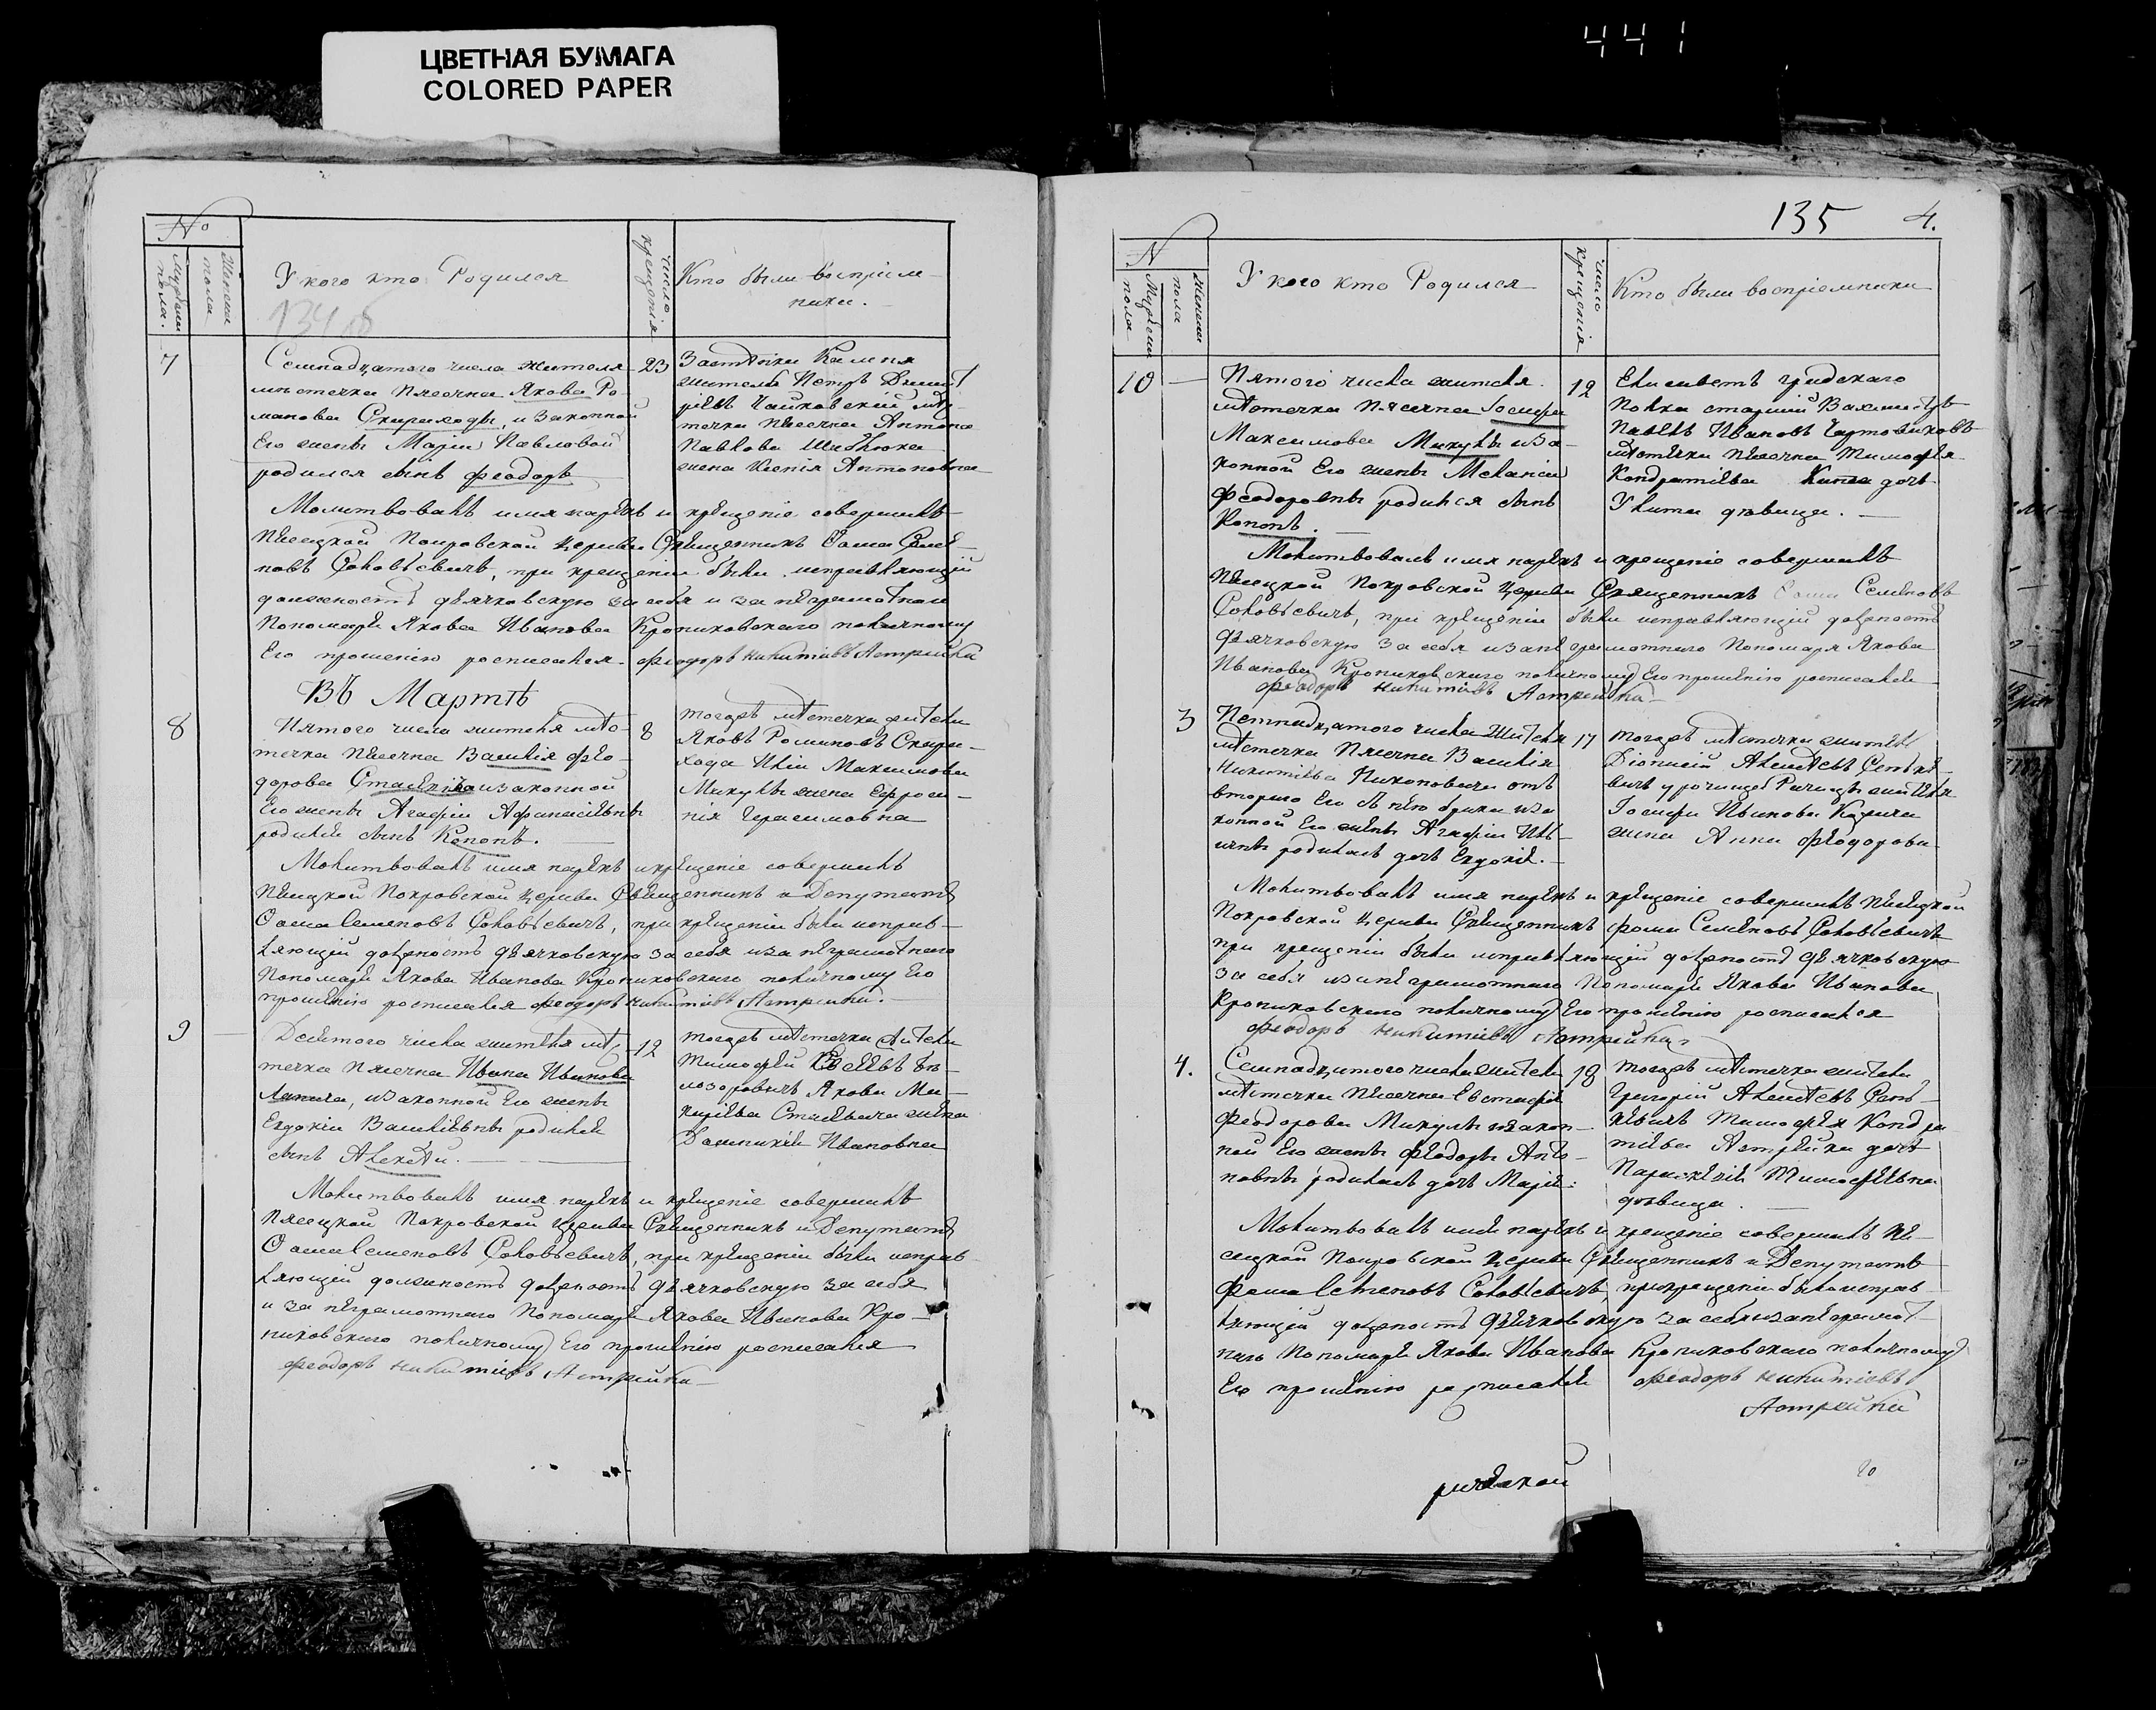 ЦВЕТНАЯ БУМАГА
COLORED PAPER
441
№
Мужеска пола.
Женска пола
У кого кто Родился
число крещенія
Кто были воспріем-
ники.
7
Семнадцатого числа жителя
мѣстечка Пясечна Якова Ро-
манова Скириходы, и законной
Его жены Маріи Павловой
родился сынъ Феодоръ
23
Камня
житель Петръ Димит
ріевъ Чайковскій мѣс
течка Пясечна Антона
Павлова
жена Ксенія Антоновна
Молитвовалъ имя нарекъ и крещеніе совершилъ
Пясецкой Покровской Церкви Священникъ Фома Семе-
новъ Соковѣевичъ, при крещеніи были исправляющій
должность дьячковскую за себя и за неграмотнаго
Пономаря Якова Иванова Крониковскаго поличному
Его прошенію росписался Феодоръ Никитіевъ Астрейка
Въ Мартѣ
8
Пятого числа жителя мѣс-
течка Пясечна Василія Фео-
дорова и законной
Его жены Агафіи Афанасіевны
родился сынъ Кононъ.
8
тогожъ мѣстечка жители
Яковъ Романовъ Скири-
хода Максимова
Микулы жена Ефроси-
нія Герасимовна
Молитвовалъ имя нарекъ и крещеніе совершилъ
Пясецкой Покровской Церкви Священникъ и Депутатъ
Фома Семеновъ Соковѣевичъ, при крещеніи были исправ-
ляющій должность дьячковскую за себя и за неграмотнаго
Пономаря Якова Иванова Крониковскаго поличному Его
прошенію росписался Феодоръ Никитіевъ Астрейка.
9
Десятого числа жителя мѣс-
течка Пясечна Ивана Иванова
Лапича, и законной Его жены
Евдокіи Васильевны родился
сынъ Алексѣй.
12
тогожъ мѣстечка жители
Тимофей Бѣ-
лозоровичъ Якова Ма-
жена
Домникія Ивановна
Молитвовалъ имя нарекъ и крещеніе совершилъ
Пясецкой Покровской Церкви Священникъ и Депутатъ
Фома Семеновъ Соковѣевичъ, при крещеніи были исправ-
ляющій должность должность дьячковскую за себя
и за неграмотнаго Пономаря Якова Иванова Кро-
никовскаго поличному Его прошенію росписался
Феодоръ Никитіевъ Астрейка
135 4.
N
Мужеска пола
Женска пола
У кого кто Родился
число крещенія
Кто были воспріемники
10
Пятого числа жителя
мѣстечка Пясечна Іосифа
Максимова Микулы и за-
конной Его жены Меланіи
Феодоровны родился сынъ
Кононъ.
12
полка старшій Вахмистръ
Павелъ Ивановъ
мѣстечка Пясечна Тимофея
Кондратіева дочь
Улита дѣвица.
Молитвовалъ имя нарекъ и крещеніе совершилъ
Пясецкой Покровской Церкви Священникъ Фома Семеновъ
Соковѣевичъ, при крещеніи были исправляющій должность
дьячковскую за себя и за неграмотнаго Пономаря Якова
Иванова Крониковскаго поличному Его прошенію росписался
Феодоръ Никитіевъ Астрейка
3
Петнадцатого числа жителя
мѣстечка Пясечна Василія
Никитіева Никоновича отъ
втораго Его съ нею брака и за
конной Его жены Агафіи
родилась дочь Евдокія.
17
тогожъ мѣстечка житель
Діонисій Алексѣевъ
вичъ урочища Рачища жителя
Іосифа Иванова
жена Анна Феодорова
Молитвовалъ имя нарекъ и крещеніе совершилъ Пясецкой
Покровской Церкви Священникъ Фома Семеновъ Соковѣевичъ
при крещеніи были исправляющій должность дьячковскую
за себя и за неграмотнаго Пономаря Якова Иванова
Крониковскаго поличному Его прошенію росписался
Феодоръ Никитіевъ Астрейка
4.
Семнадцатого числа жителя
мѣстечка Пясечна Евстафія
Феодорова Микулы и закон-
ной Его жены Феодоры Анто-
новны родилась дочь Марія.
18
тогожъ мѣстечка жители
Григорій Алексѣевъ Сень-
кевичъ Тимофея Кондра
тіева Астрейки дочь
Параскевія Тимофеевна
дѣвица.
Молитвовалъ имя нарекъ и крещеніе совершилъ Пя-
сецкой Покровской Церкви Священникъ и Депутатъ
Фома Семеновъ Соковѣевичъ при крещеніи были исправ-
ляющій должность дьячковскую за себя и за неграмот-
наго Пономаря Якова Иванова Крониковскаго поличному
Его прошенію росписался Феодоръ Никитіевъ
Астрейка